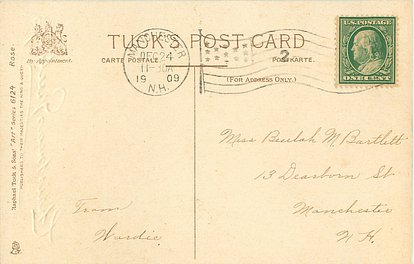 By Appointment.
TUCK'S POST CARD
CARTE POSTALE
POSTKARTE.
(FOR ADDRESS ONLY.)
MANCHESTER
DEC 24
11-30A
1909
N.H.
2
U.S. POSTAGE
ONE CENT
Raphael Tuck & Sons' "Art" Series 6124 Rose.
PUBLISHERS TO THEIR MAJESTIES THE KING & QUEEN
Miss Beulah M. Bartlett
13 Dearborn St
Manchester
N. H.
From
Wardie.